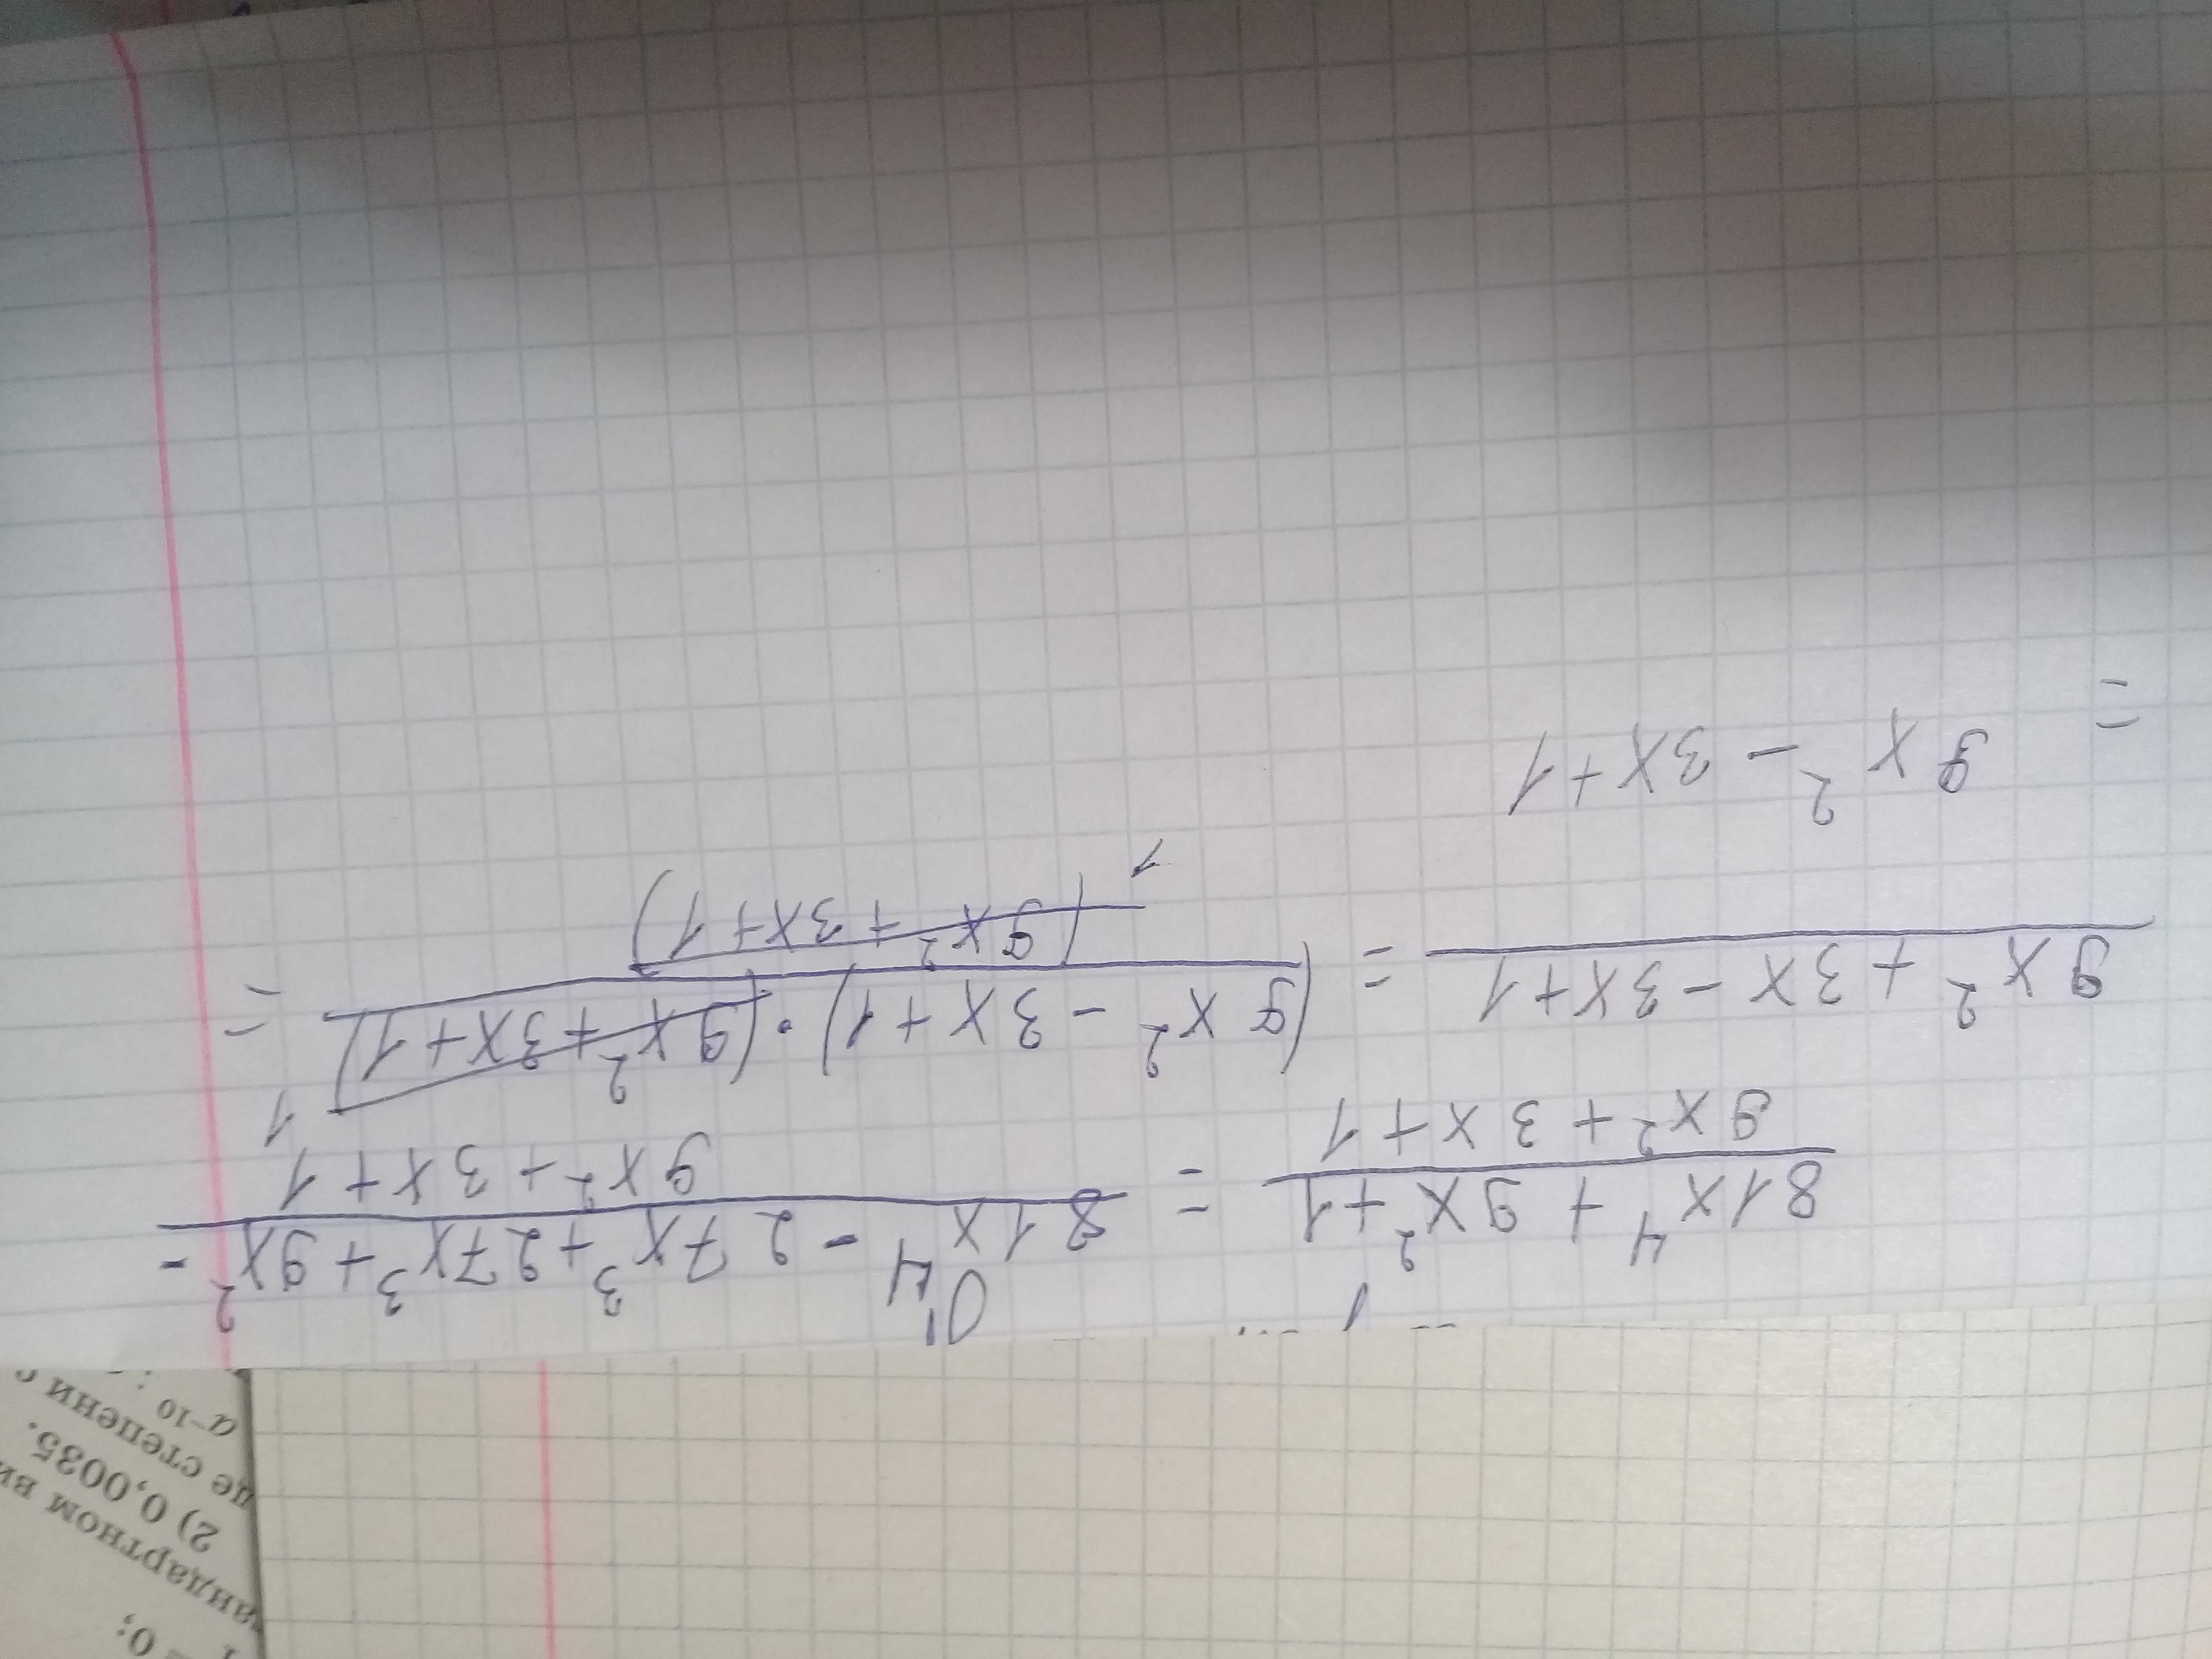 81x⁴ + 9x² + 1 / 9x² + 3x + 1 = 81x⁴ - 27x³ + 27x³ + 9x² -
9x² + 3x - 3x + 1 / 9x² + 3x + 1 = (9x² - 3x + 1) · (9x² + 3x + 1) / (9x² + 3x + 1) =
1
1
= 9x² - 3x + 1
= 0;
андартном ви
2) 0,0035.
де степени с
a⁻¹⁰ :